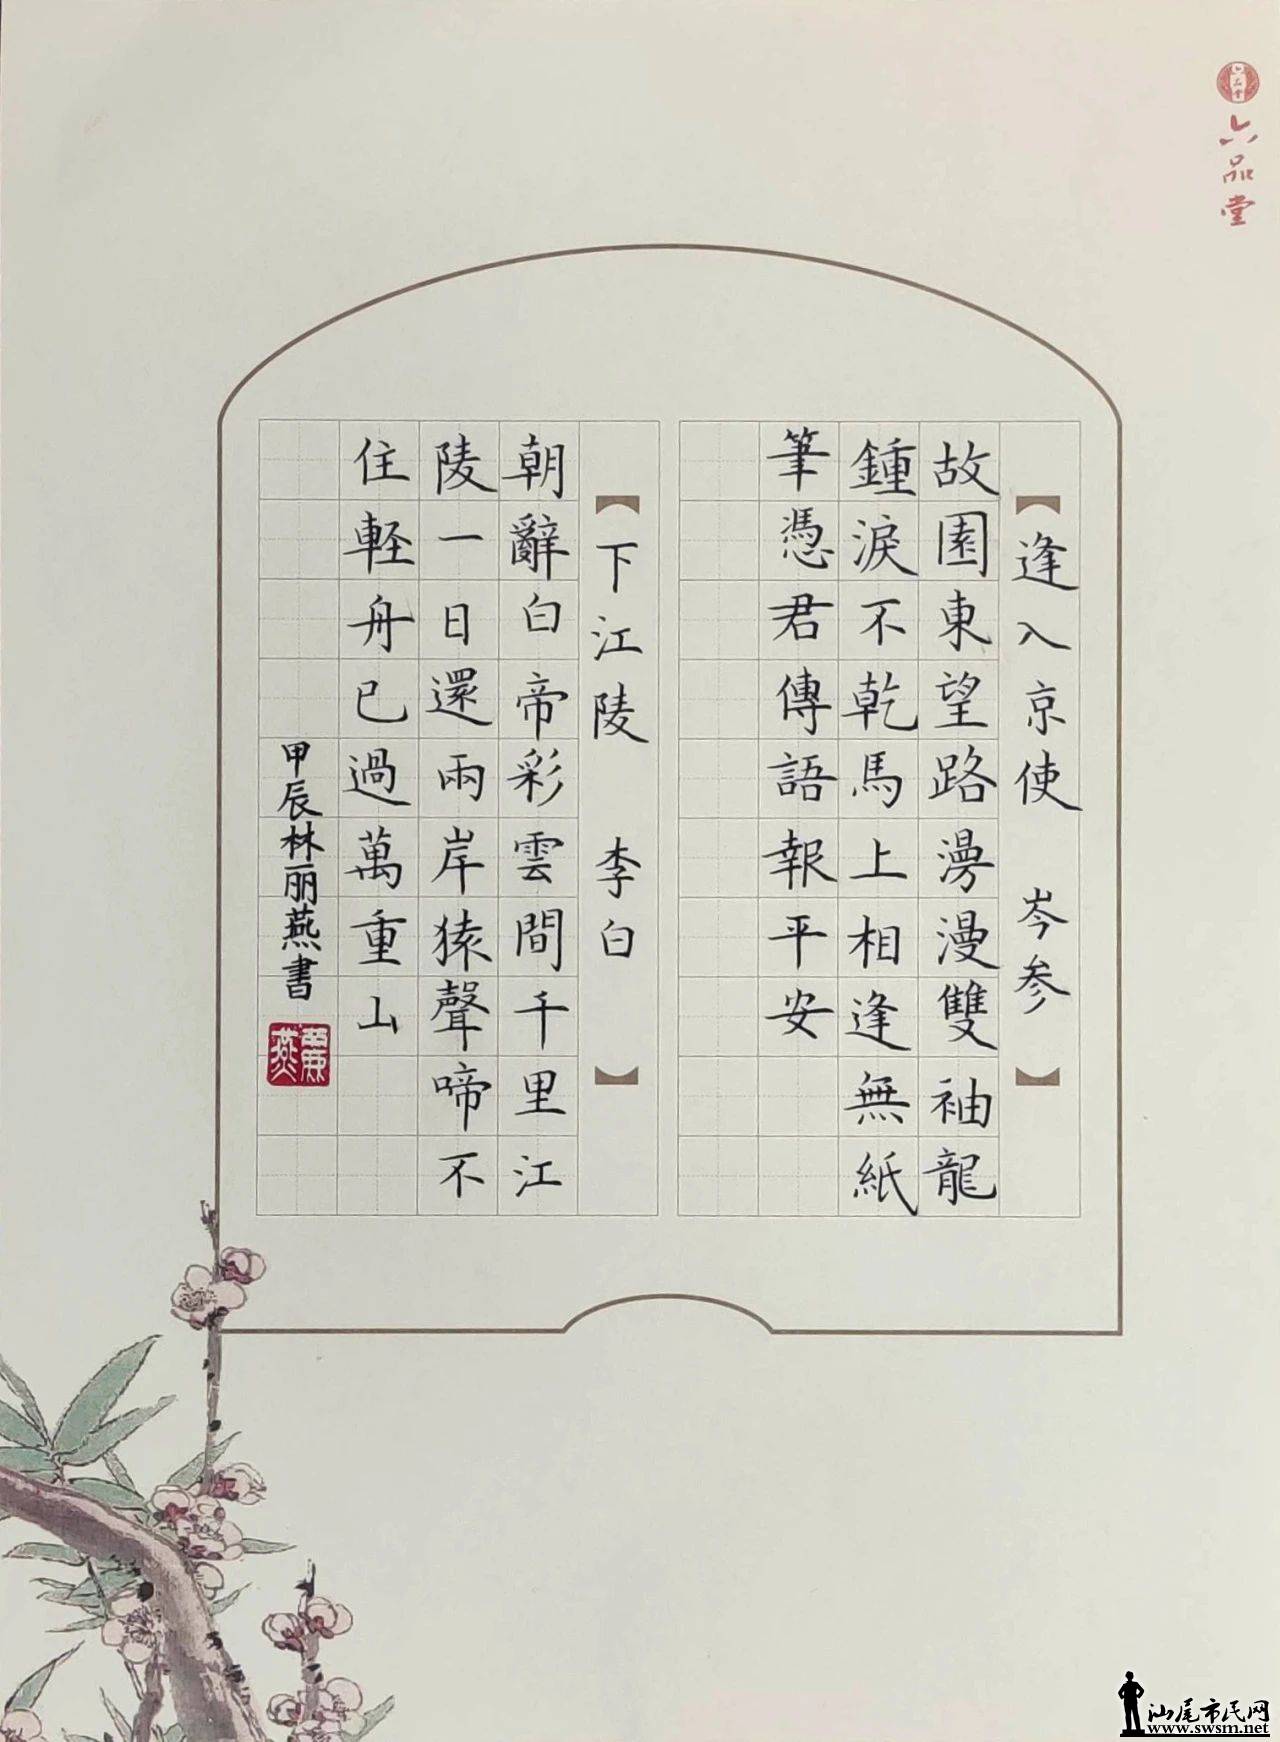 六品堂
【逢入京使 岑参】
故園東望路漫漫雙袖龍
鍾淚不乾馬上相逢無紙
筆憑君傳語報平安
【下江陵 李白】
朝辭白帝彩雲間千里江
陵一日還兩岸猿聲啼不
住軽舟已過萬重山
甲辰林丽燕書
麗燕
汕尾市民网
www.swsm.net